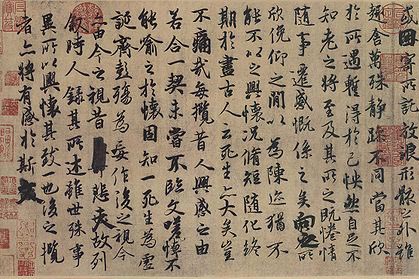 或因寄所託放浪形骸之外雖
趣舍萬殊靜躁不同當其欣
於所遇暫得於己怏然自足不
知老之將至及其所之既惓情
隨事遷感慨係之矣向之所
欣俛仰之間以為陳迹猶不
能不以之興懷況脩短隨化終
期於盡古人云死生亦大矣豈
不痛哉每攬昔人興感之由
若合一契未嘗不臨文嗟悼不
能喻之於懷固知一死生為虛
誕齊彭殤為妄作後之視今
亦由今之視昔悲夫故列
敘時人錄其所述雖世殊事
異所以興懷其致一也後之攬
者亦將有感於斯文